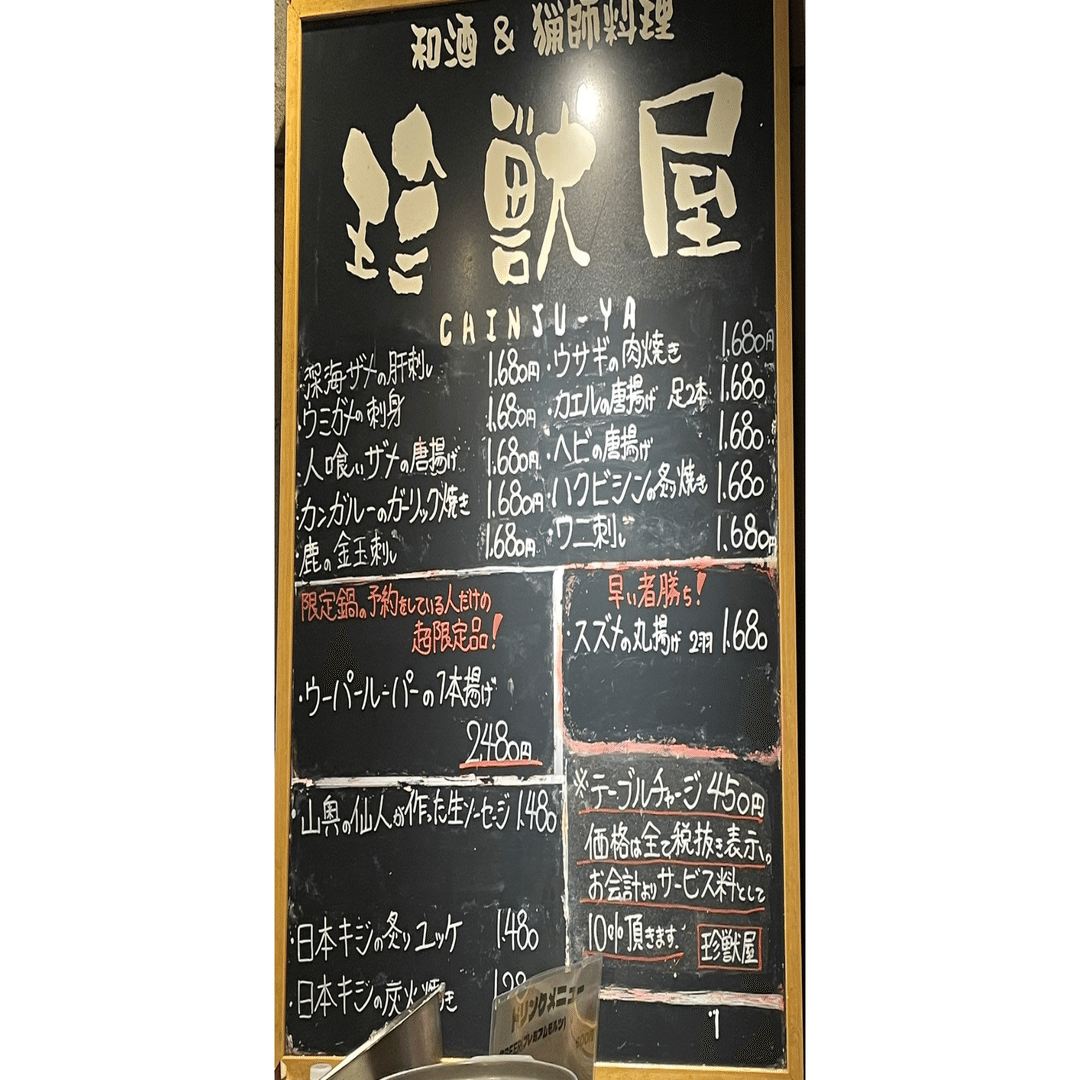 和酒 & 猟師料理
珍獣屋
CHINJU-YA
・深海ザメの肝刺し 1.680円
・ウミガメの刺身 1.680円
・人喰いザメの唐揚げ 1.680円
・カンガルーのガーリック焼き 1.680円
・鹿の金玉刺し 1.680円
・ウサギの肉焼き 1.680円
・カエルの唐揚げ 足2本 1.680
・ヘビの唐揚げ 1.680
・ハクビシンの炙り焼き 1.680
・ワニ刺し 1.680円
限定鍋の予約をしている人だけの
超限定品!
・ウーパールーパーの1本揚げ
2.480円
早い者勝ち!
・スズメの丸揚げ 2羽 1.680
・山奥の仙人が作った生ソーセージ 1.480
・日本キジの炙りユッケ 1.480
・日本キジの炭火焼き
※テーブルチャージ450円
価格は全て税抜き表示。
お会計よりサービス料として
10%頂きます。 珍獣屋
ドリンクメニュー